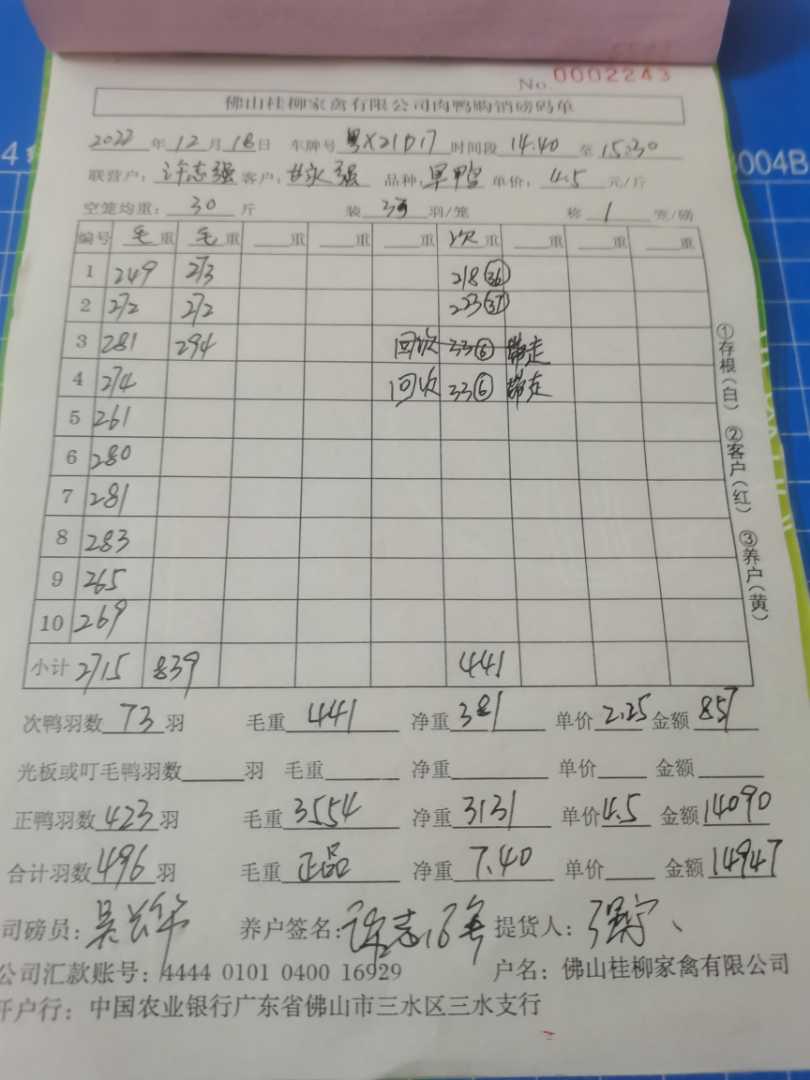 No. 0002243
佛山桂柳家禽有限公司肉鸭购销磅码单
2022年12月18日 车牌号 粤X21D17 时间段 14.40 至 15:30
联营户: 许志强 客户: 甘永强 品种: 单价: 4.5 元/斤
空笼均重: 30 斤 装 羽/笼 称 1 笼/磅
编号 毛重 毛重 重 重 重 次重 重 重 重
1 249 273 218 36
2 272 272 223 37
3 281 294 回次 33 6 带走
4 274 回次 33 6 带走
5 261
6 280
7 281
8 283
9 265
10 269
小计 2715 839 441
次鸭羽数 73 羽 毛重 441 净重 381 单价 2.25 金额 857
光板或叮毛鸭羽数 羽 毛重 净重 单价 金额
正鸭羽数 423 羽 毛重 3554 净重 3131 单价 4.5 金额 14090
合计羽数 496 羽 毛重 正品 净重 7.40 单价 金额 14947
司磅员: 养户签名: 提货人:
公司汇款账号: 4444 0101 0400 16929 户名: 佛山桂柳家禽有限公司
开户行: 中国农业银行广东省佛山市三水区三水支行
①存根(白) ②客户(红) ③养户(黄)
004B
4